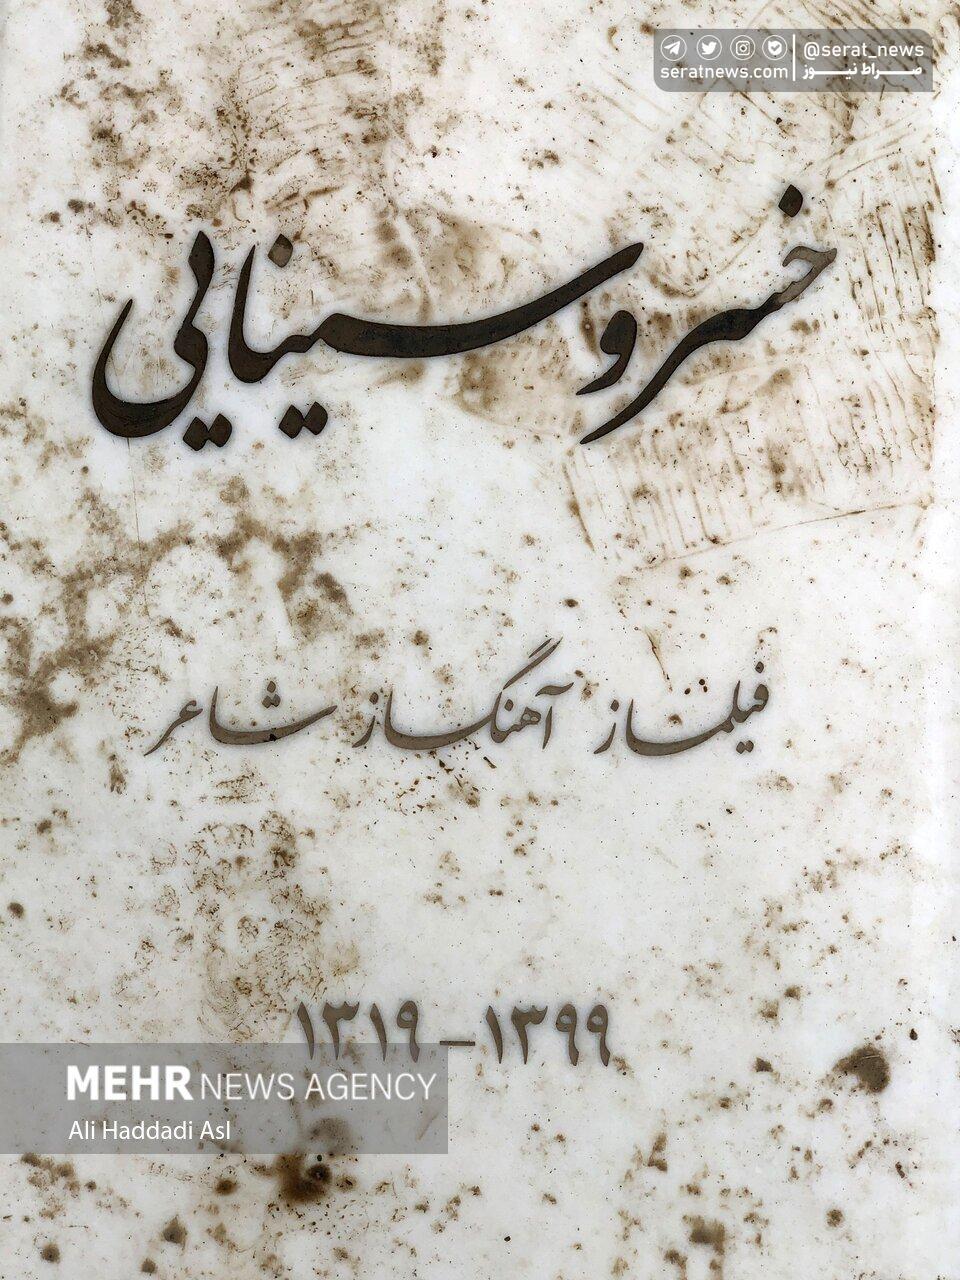 @serat_news
seratnews.com | صراط نیوز
خسرو سینایی
فیلمساز آهنگساز شاعر
۱۳۱۹ - ۱۳۹۹
MEHR NEWS AGENCY
Ali Haddadi Asl